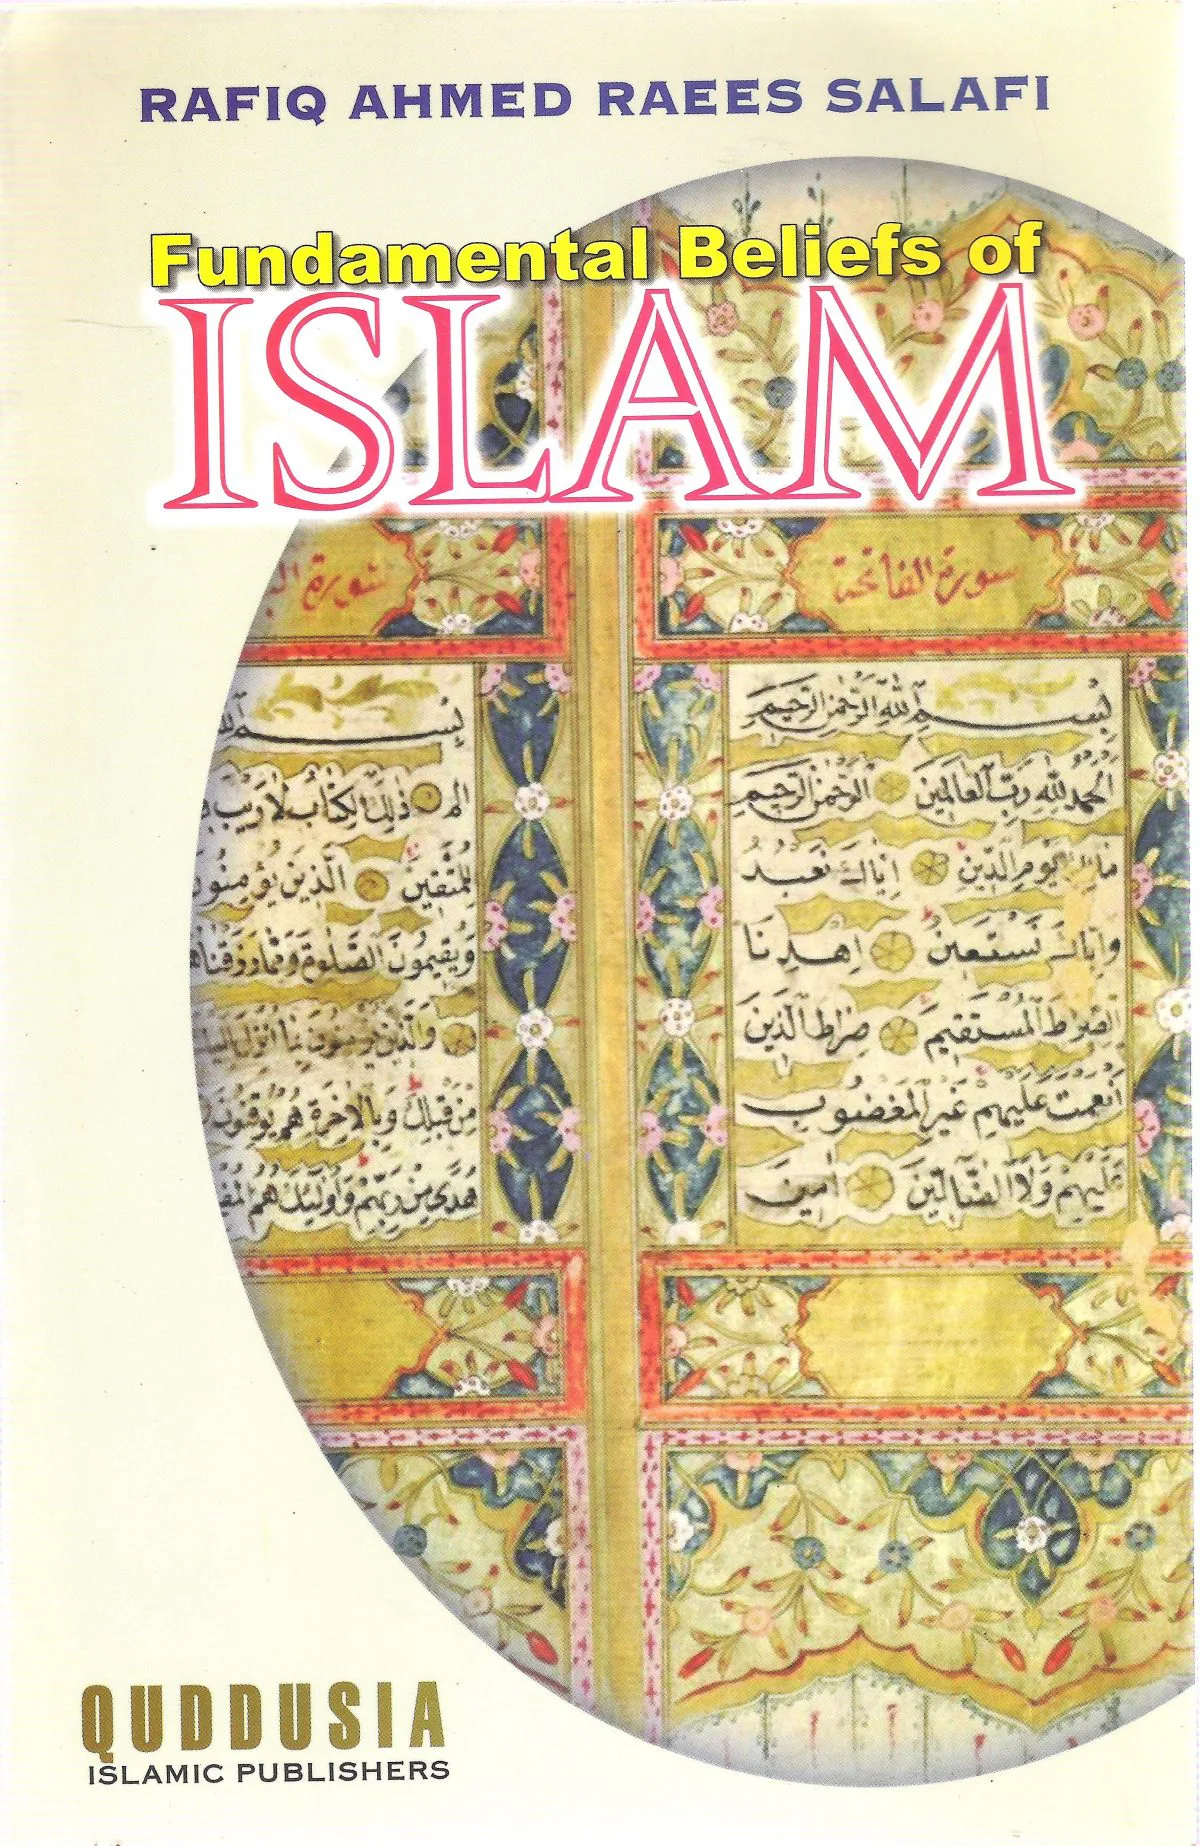 RAFIQ AHMED RAEES SALAFI
Fundamental Beliefs of
ISLAM
سورة الفاتحة
بسم الله الرحمن الرحيم
الحمد لله رب العالمين الرحمن الرحيم
يوم الدين إياك نعبد
وإياك نستعين اهدنا
الصراط المستقيم صراط الذين
أنعمت عليهم غير المغضوب
عليهم ولا الضالين آمين
سورة
بسم
الم ذلك الكتاب لا ريب
للمتقين الذين يؤمنون
ويقيمون الصلوة ومما رزقناهم
والذين يؤمنون بما أنزل إليك
من قبلك وبالآخرة هم يوقنون
هدى من ربهم وأولئك هم
QUDDUSIA
ISLAMIC PUBLISHERS